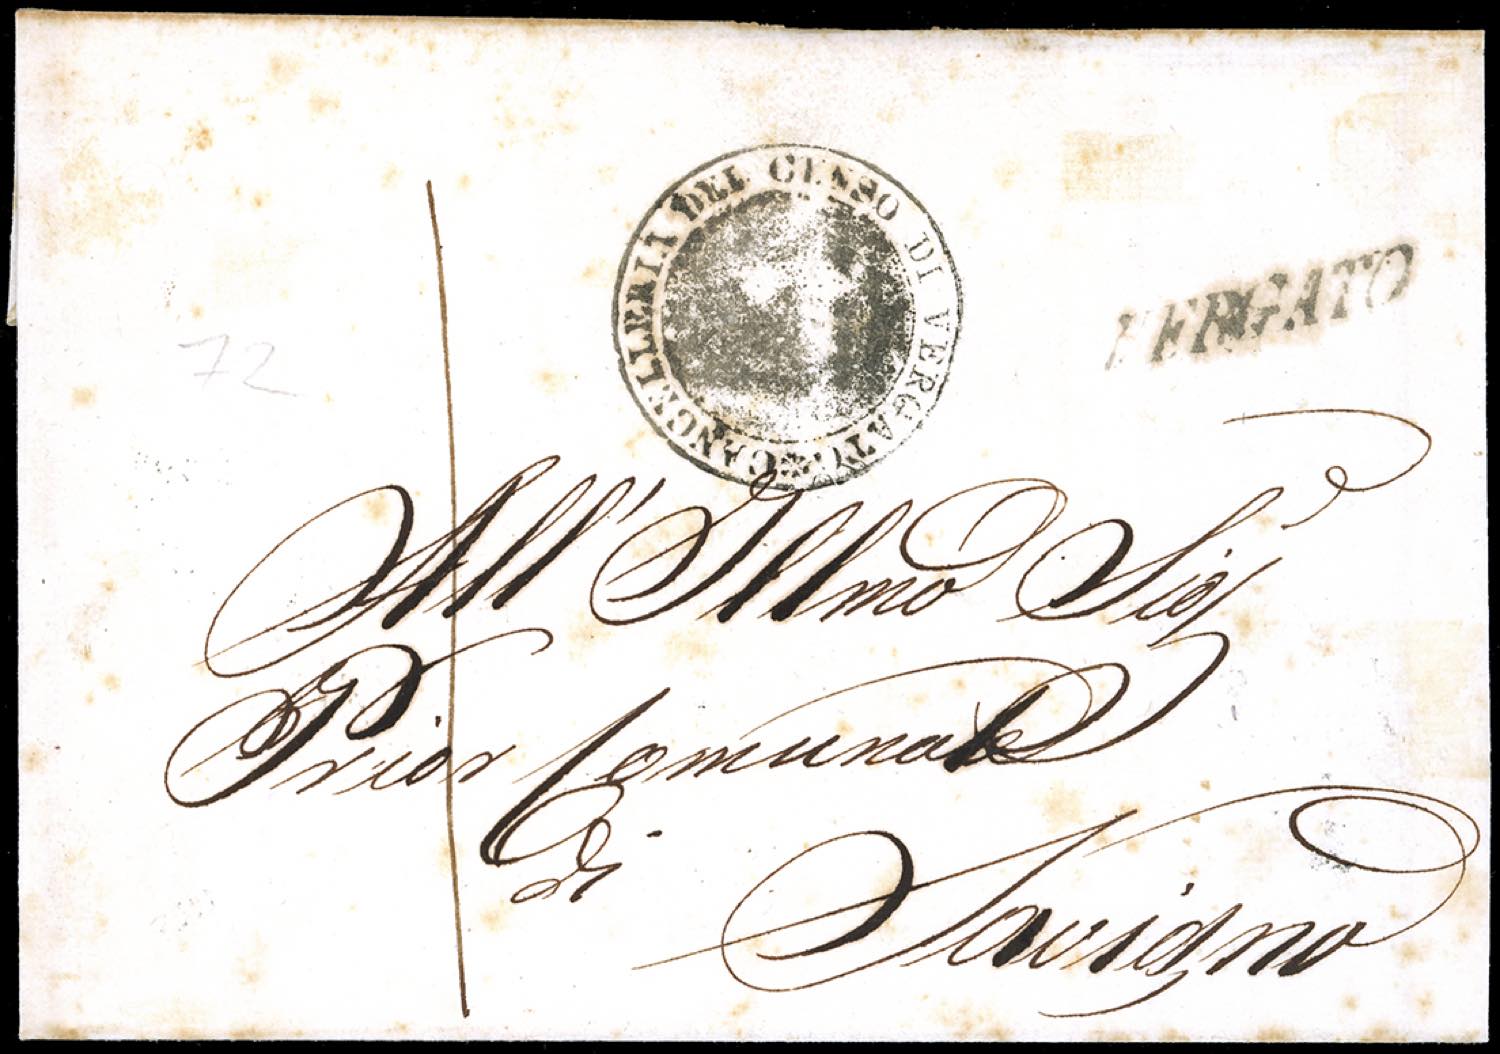 CANCELLERIA DEL CENSO DI VERGATO
VERGATO
72
All' Illmo Sigr
Prior Comunale
di
Savigno